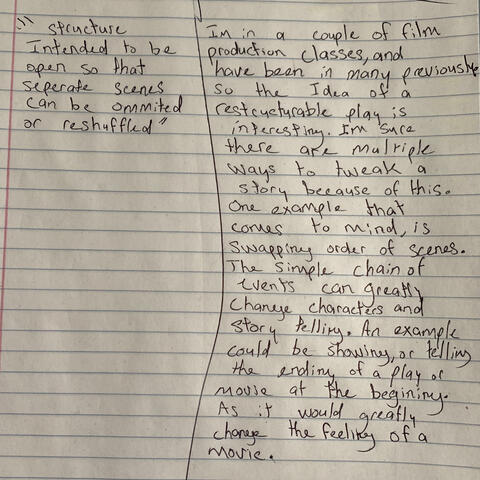 "structure
Intended to be
open so that
seperate scenes
can be ommited
or reshuffled"
Im in a couple of film
production classes, and
have been in many previously
so the Idea of a
restructurable play is
interesting. Im sure
there are multiple
ways to tweak a
story because of this.
One example that
comes to mind, is
Swapping order of scenes.
The simple chain of
events can greatly
change characters and
story telling. An example
could be showing, or telling
the ending of a play or
movie at the begining.
As it would greatly
change the feeling of a
movie.